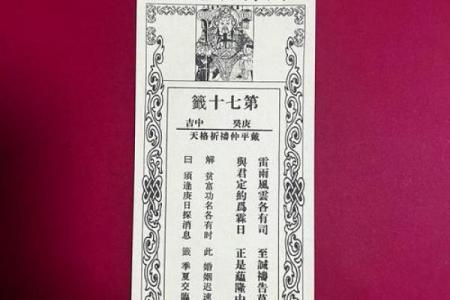 第七十籤
庚癸 中吉
戴平仲禱祈格天
雷雨風雲各有司 至誠禱告
與君定約爲霖日 正是蘊隆中
解 貧富功名各有时 此 婚姻迟速
曰 須逢庚日探消息 籤 季夏交臨